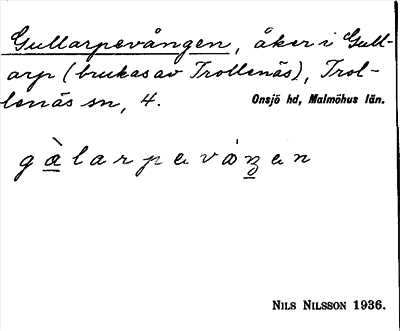 Gullarpevången, åker i Gull-
arp (brukas av Trollenäs), Trol-
lenäs sn, 4. Onsjö hd, Malmöhus län.
gàlarpavåŋan
NILS NILSSON 1936.